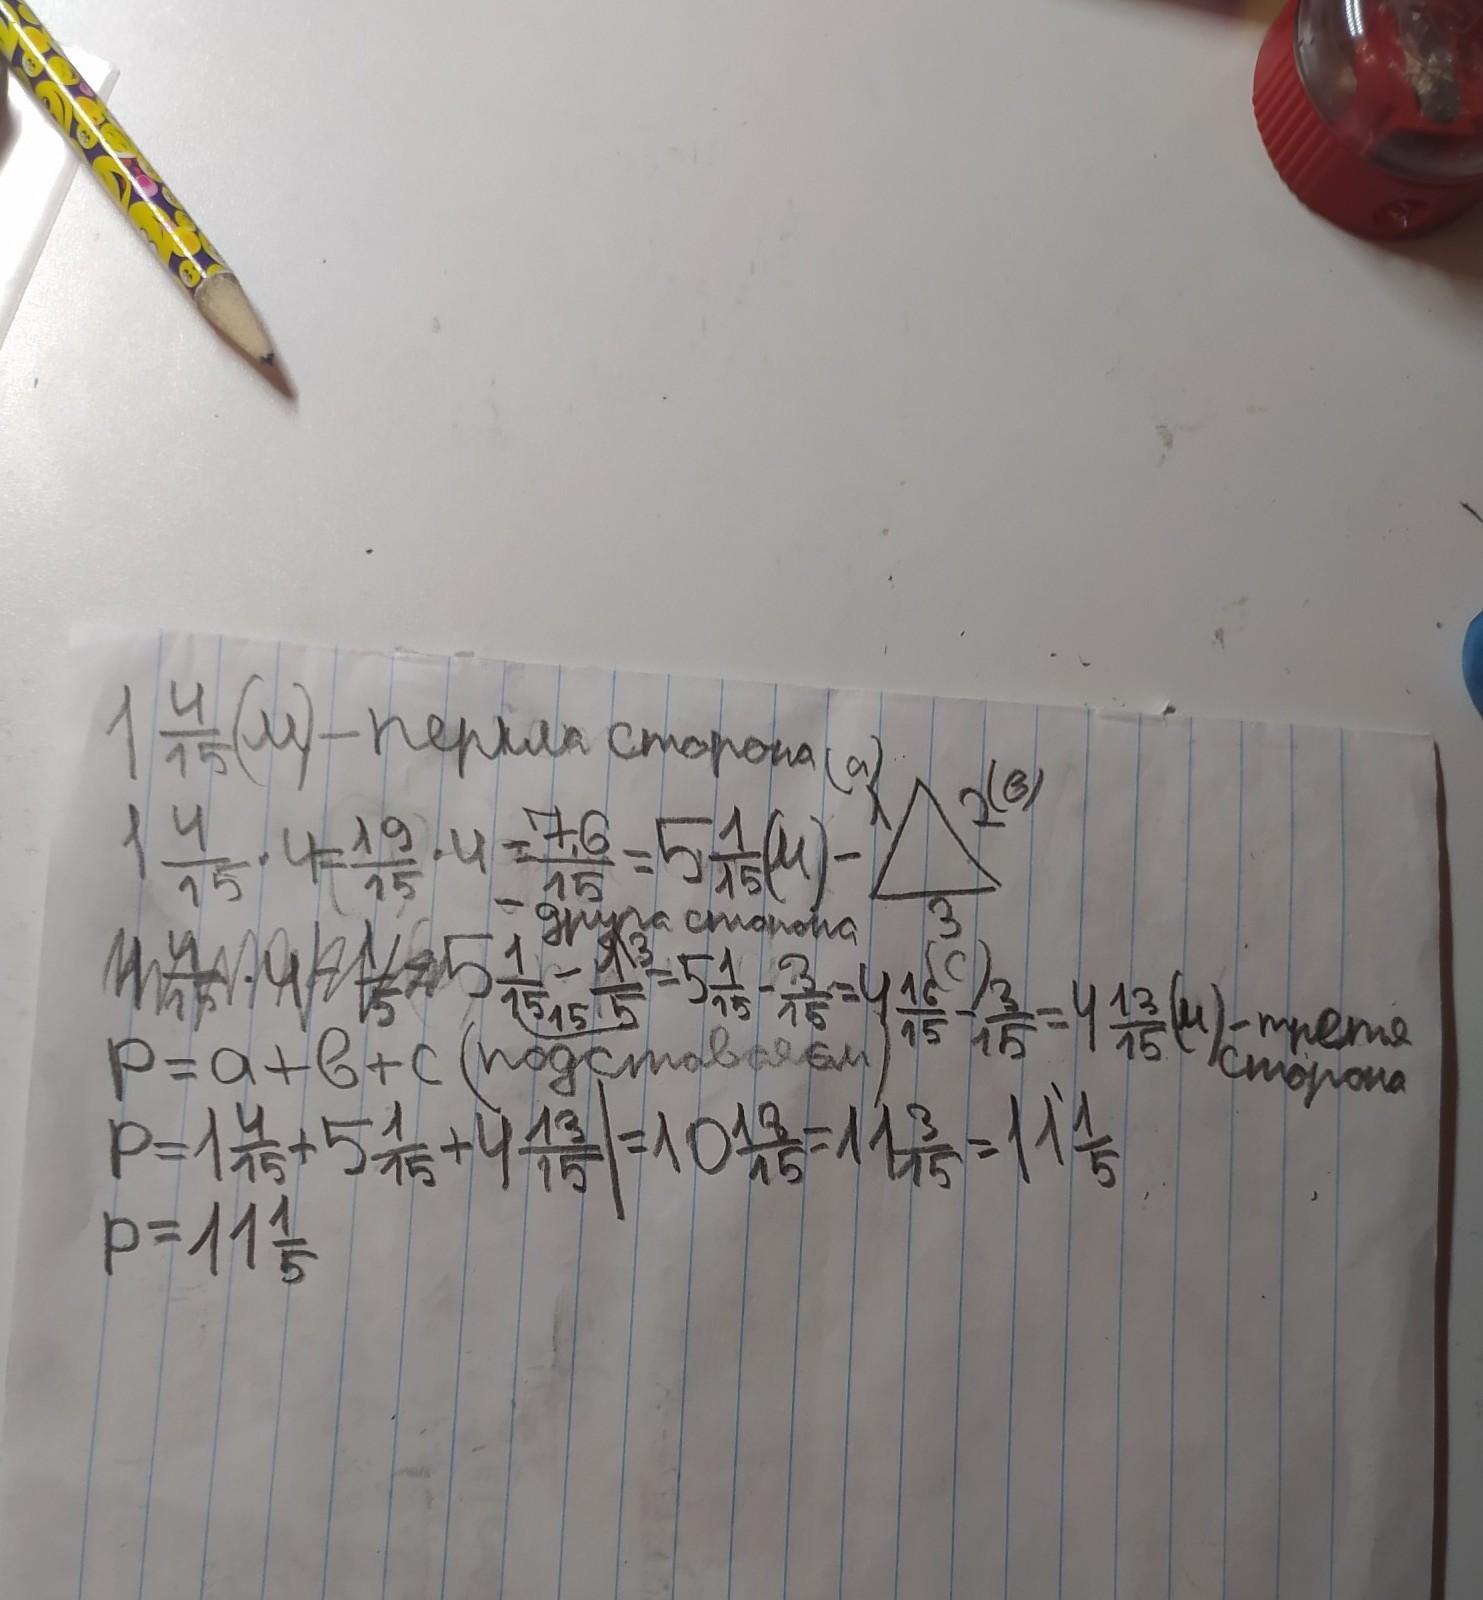 1 4/15 (м) - перша сторона (а)
1 4/15 · 4 = 19/15 · 4 = 76/15 = 5 1/15 (м) -
- друга сторона
1 2 (в) 3 (с)
5 1/15 - 1/5 = 5 1/15 - 3/15 = 4 16/15 - 3/15 = 4 13/15 (м) - третя сторона
P = а + в + с (подставляєм)
P = 1 4/15 + 5 1/15 + 4 13/15 | = 10 18/15 = 11 3/15 = 11 1/5
P = 11 1/5